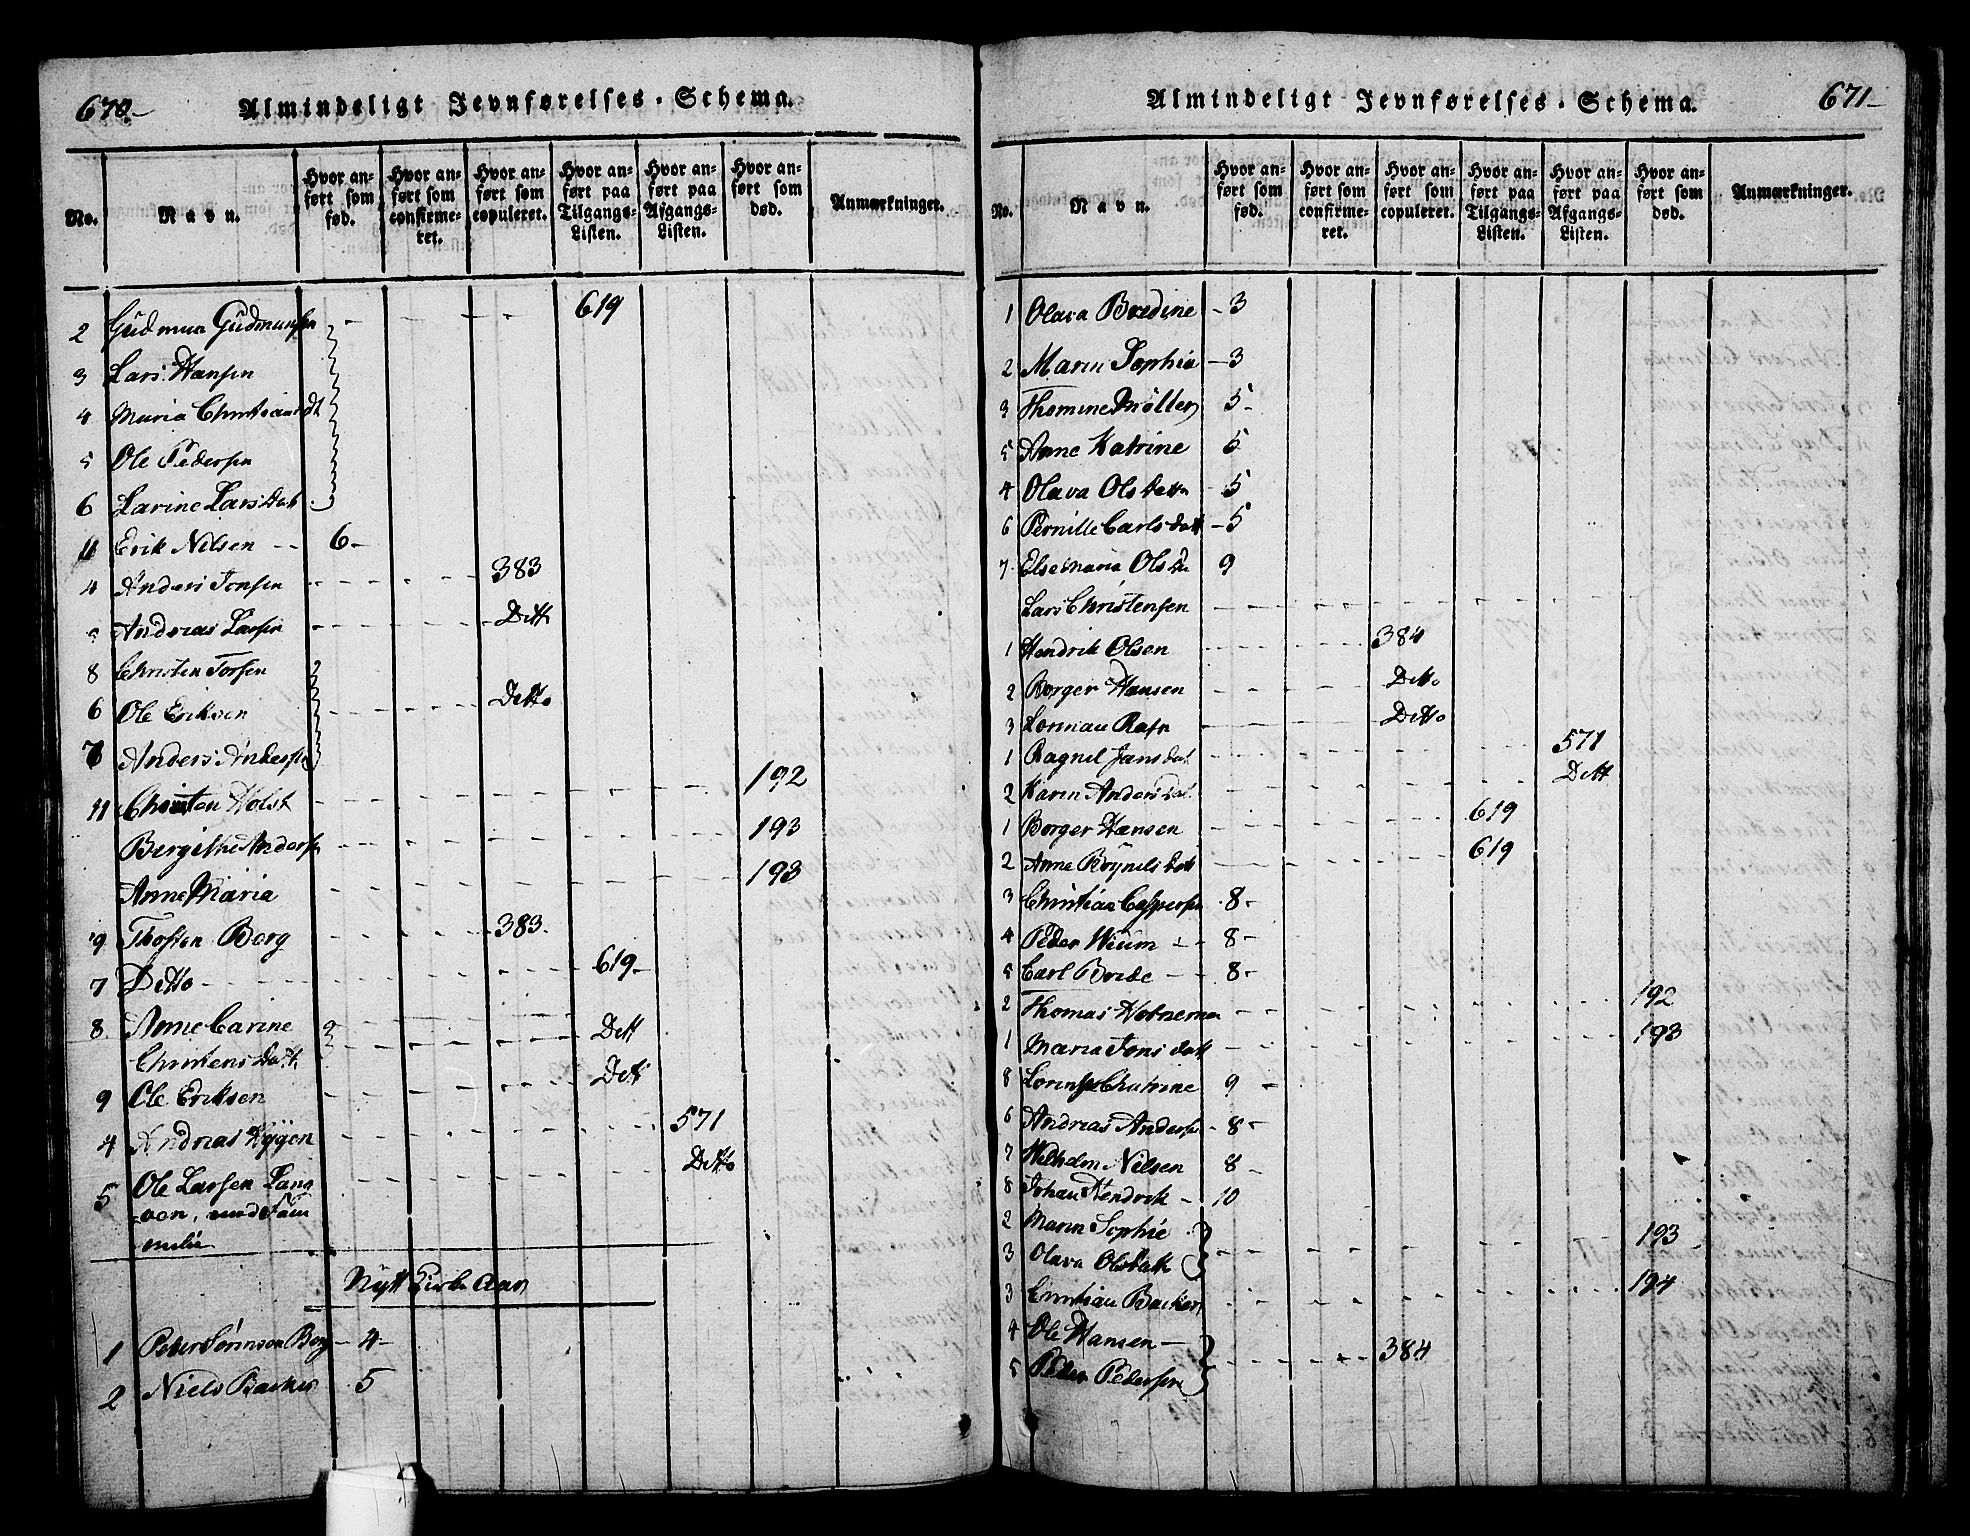 670.
Almindeligt Jevnførelses-Schema.
No.
Navn.
Hvor anført som fød.
Hvor anført som confirmeret.
Hvor anført som copuleret.
Hvor anført paa Tilgangs-Listen.
Hvor anført paa Afgangs-Listen.
Hvor anført som død.
Anmærkninger.
2 Gudmun Gudmunsen - - - 619
3 Lars Hansen
4 Maria
5 Ole Pedersen
6 Larine Larsdatt
Erik Nilsen -- 6-
4 Anders Jonsen - - - - 383
5 Andreas Larsen - - - - Dett
8 Christen Torsen
6 Ole Eriksen - - - - Detto
7 Anders Andersen
11 Christen Holst - - - - 192
Bergithe Anders - - - - 193
Anne Maria - - - - 193
9 Thosten Borg - - - 383.
7 Ditto - - - - 619-
8 Anne Carine Dett
Christensdatt
9 Ole Eriksen - - - - Dett
4 Andreas - - - - 571
5 Ole Larsen Lang Detto
=oen, med Fam
milie
Nytt Kirke Aar
1 Peter Sørensen Berg - 4-
2 Niels Backer 5
671-
Almindeligt Jevnførelses-Schema.
No.
Navn.
Hvor anført som fød.
Hvor anført som confirmeret.
Hvor anført som copuleret.
Hvor anført paa Tilgangs-Listen.
Hvor anført paa Afgangs-Listen.
Hvor anført som død.
Anmærkninger.
1 Olava Bredine - 3
2 Maren Sophia - 3
3 Thomine Møller 5-
5 Anne Katrine 5
4 Olava Olsdatt - 5
6 Pernille Carlsdatt - 5
7 Else Maria Ols 9
Lars Christensen - - - -
1 Hendrik Olsen - - - - 384
2 Borger Hansen - - - - Detto
3 Rafn - - - - Detto
1 Ragnel Jansdat - - - - 571
2 Karen Andersdat - - - - Dett
1 Borger Hansen - - - - 619
2 Anne - - - - 619
3 Christian Caspersen 8-
4 Peder Wium - - 8-
5 Carl Brede - - 8-
2 Thomas - - - - 192
1 Maria Jonsdatt - - - - 193
8 Chatrine 9 -
6 Andreas Anders - 8-
7 Wilhelm Nilsen 8-
8 Johan Hendrik - 10
2 Maren Sophie
3 Olava Olsdatt - - - - 193
3 Backer - - - - 194
4 Ole Hansen -
5 Peder Pedersen - - - - 384